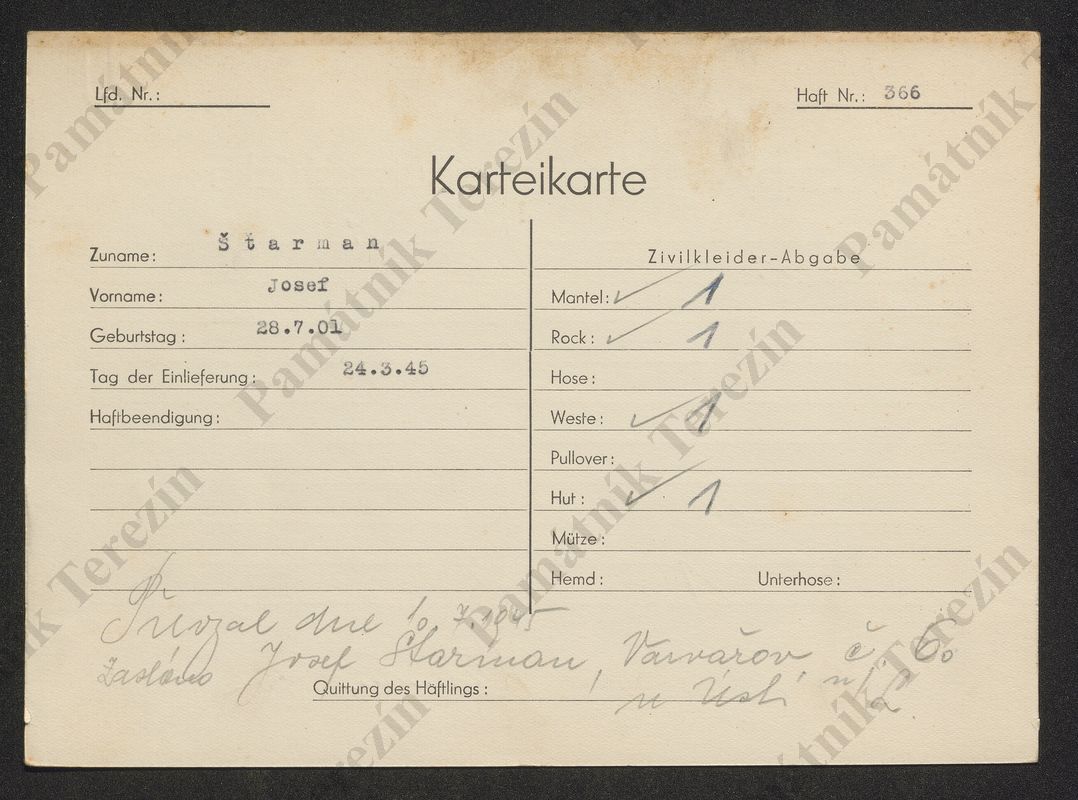 Lfd. Nr.:
Haft Nr.: 366
Karteikarte
Zuname: Štarman
Vorname: Josef
Geburtstag: 28.7.01
Tag der Einlieferung: 24.3.45
Haftbeendigung:
Zivilkleider-Abgabe
Mantel: ✓ 1
Rock: ✓ 1
Hose:
Weste: ✓ 1
Pullover:
Hut: ✓ 1
Mütze:
Hemd: Unterhose:
Převzal dne 10.7.1945
Zasláno Josef Štarman, Varvažov č. 60
Quittung des Häftlings:
u Ústí n/L
Památník Terezín
Památník Terezín
Památník Terezín
Památník Terezín
Památník Terezín